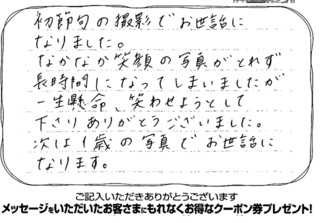 初節句の撮影でお世話に
なりました。
なかなか笑顔の写真がとれず
長時間になってしまいましたが
一生懸命、笑わせようとして
下さりありがとうございました。
次は1歳の写真でお世話に
なります。
ご記入いただきありがとうございます
メッセージをいただいたお客さまにもれなくお得なクーポン券プレゼント!